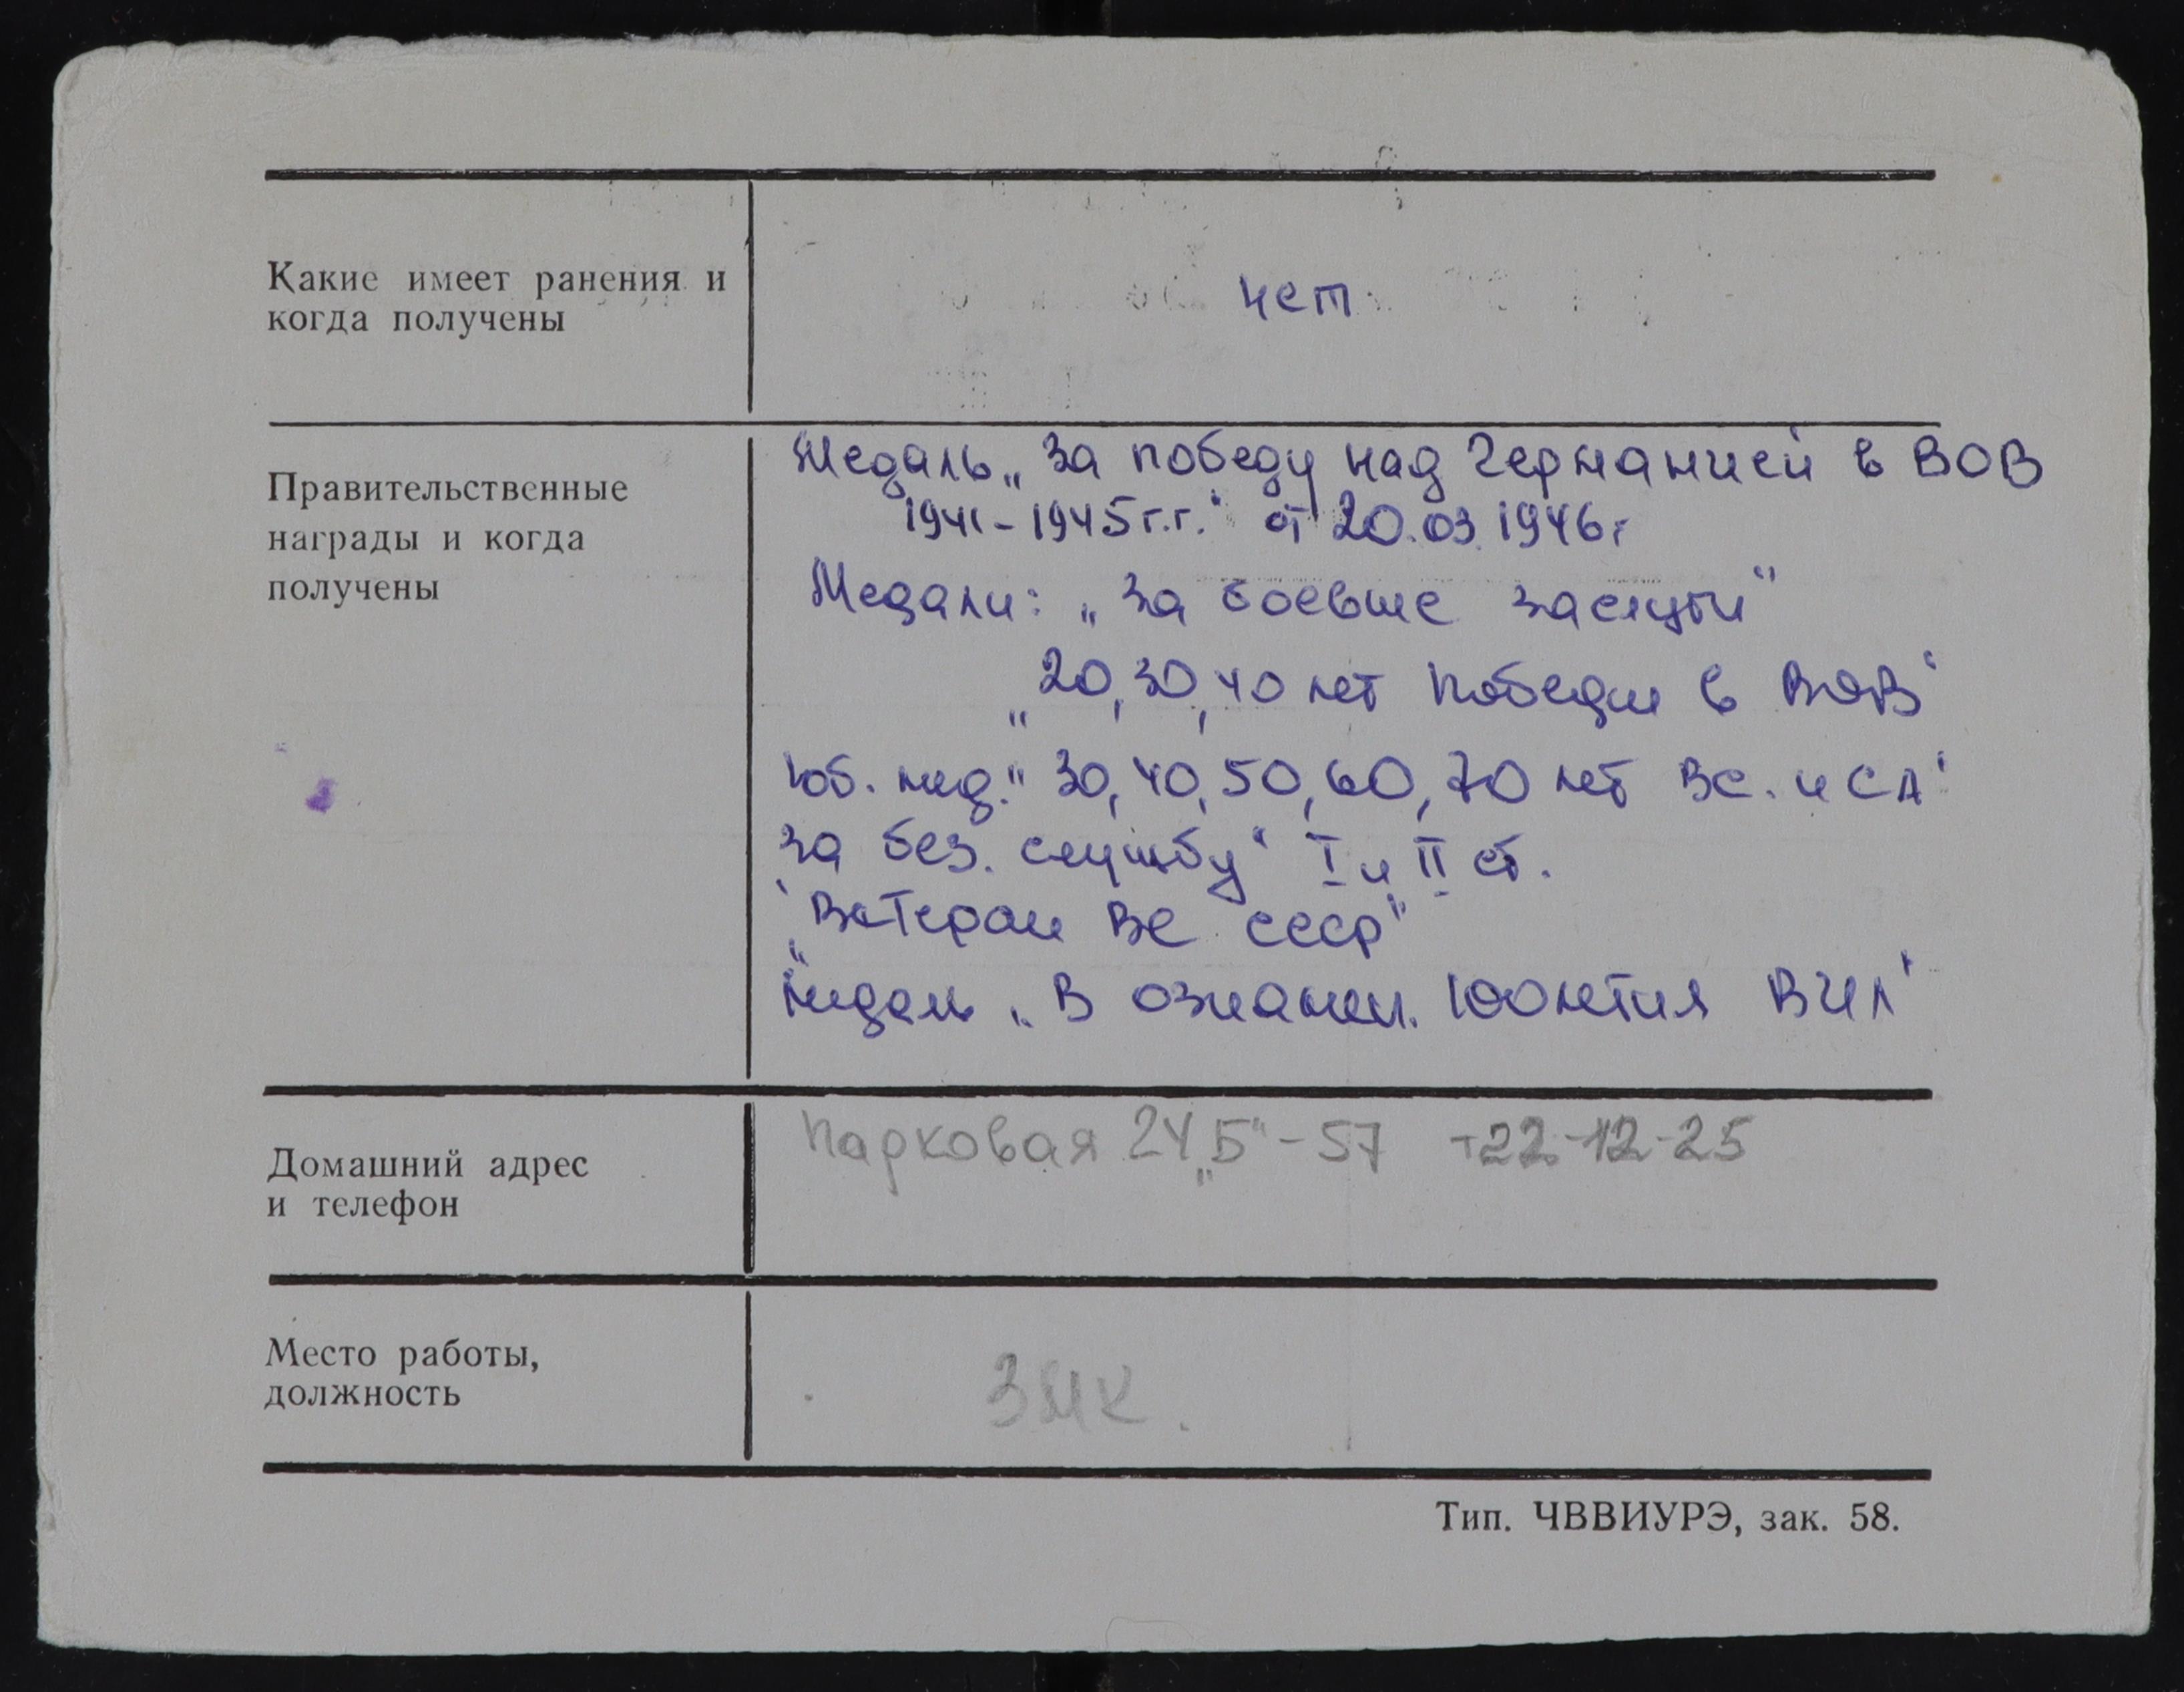 Какие имеет ранения и
когда получены
нет
Правительственные
награды и когда
получены
Медаль „За победу над Германией в ВОВ
1941-1945г.г." от 20.03.1946г
Медали: „За боевые заслуги"
„20,30,40 лет Победы в ВОВ"
Юб. мед." 30,40,50,60,70 лет ВС. и СА"
За без. службу" I и II ст.
„Ветеран ВС СССР"
медаль „В ознамен. 100летия ВИЛ"
Домашний адрес
и телефон
Парковая 24„Б"-57 т22-12-25
Место работы,
должность
ЗМК.
Тип. ЧВВИУРЭ, зак. 58.